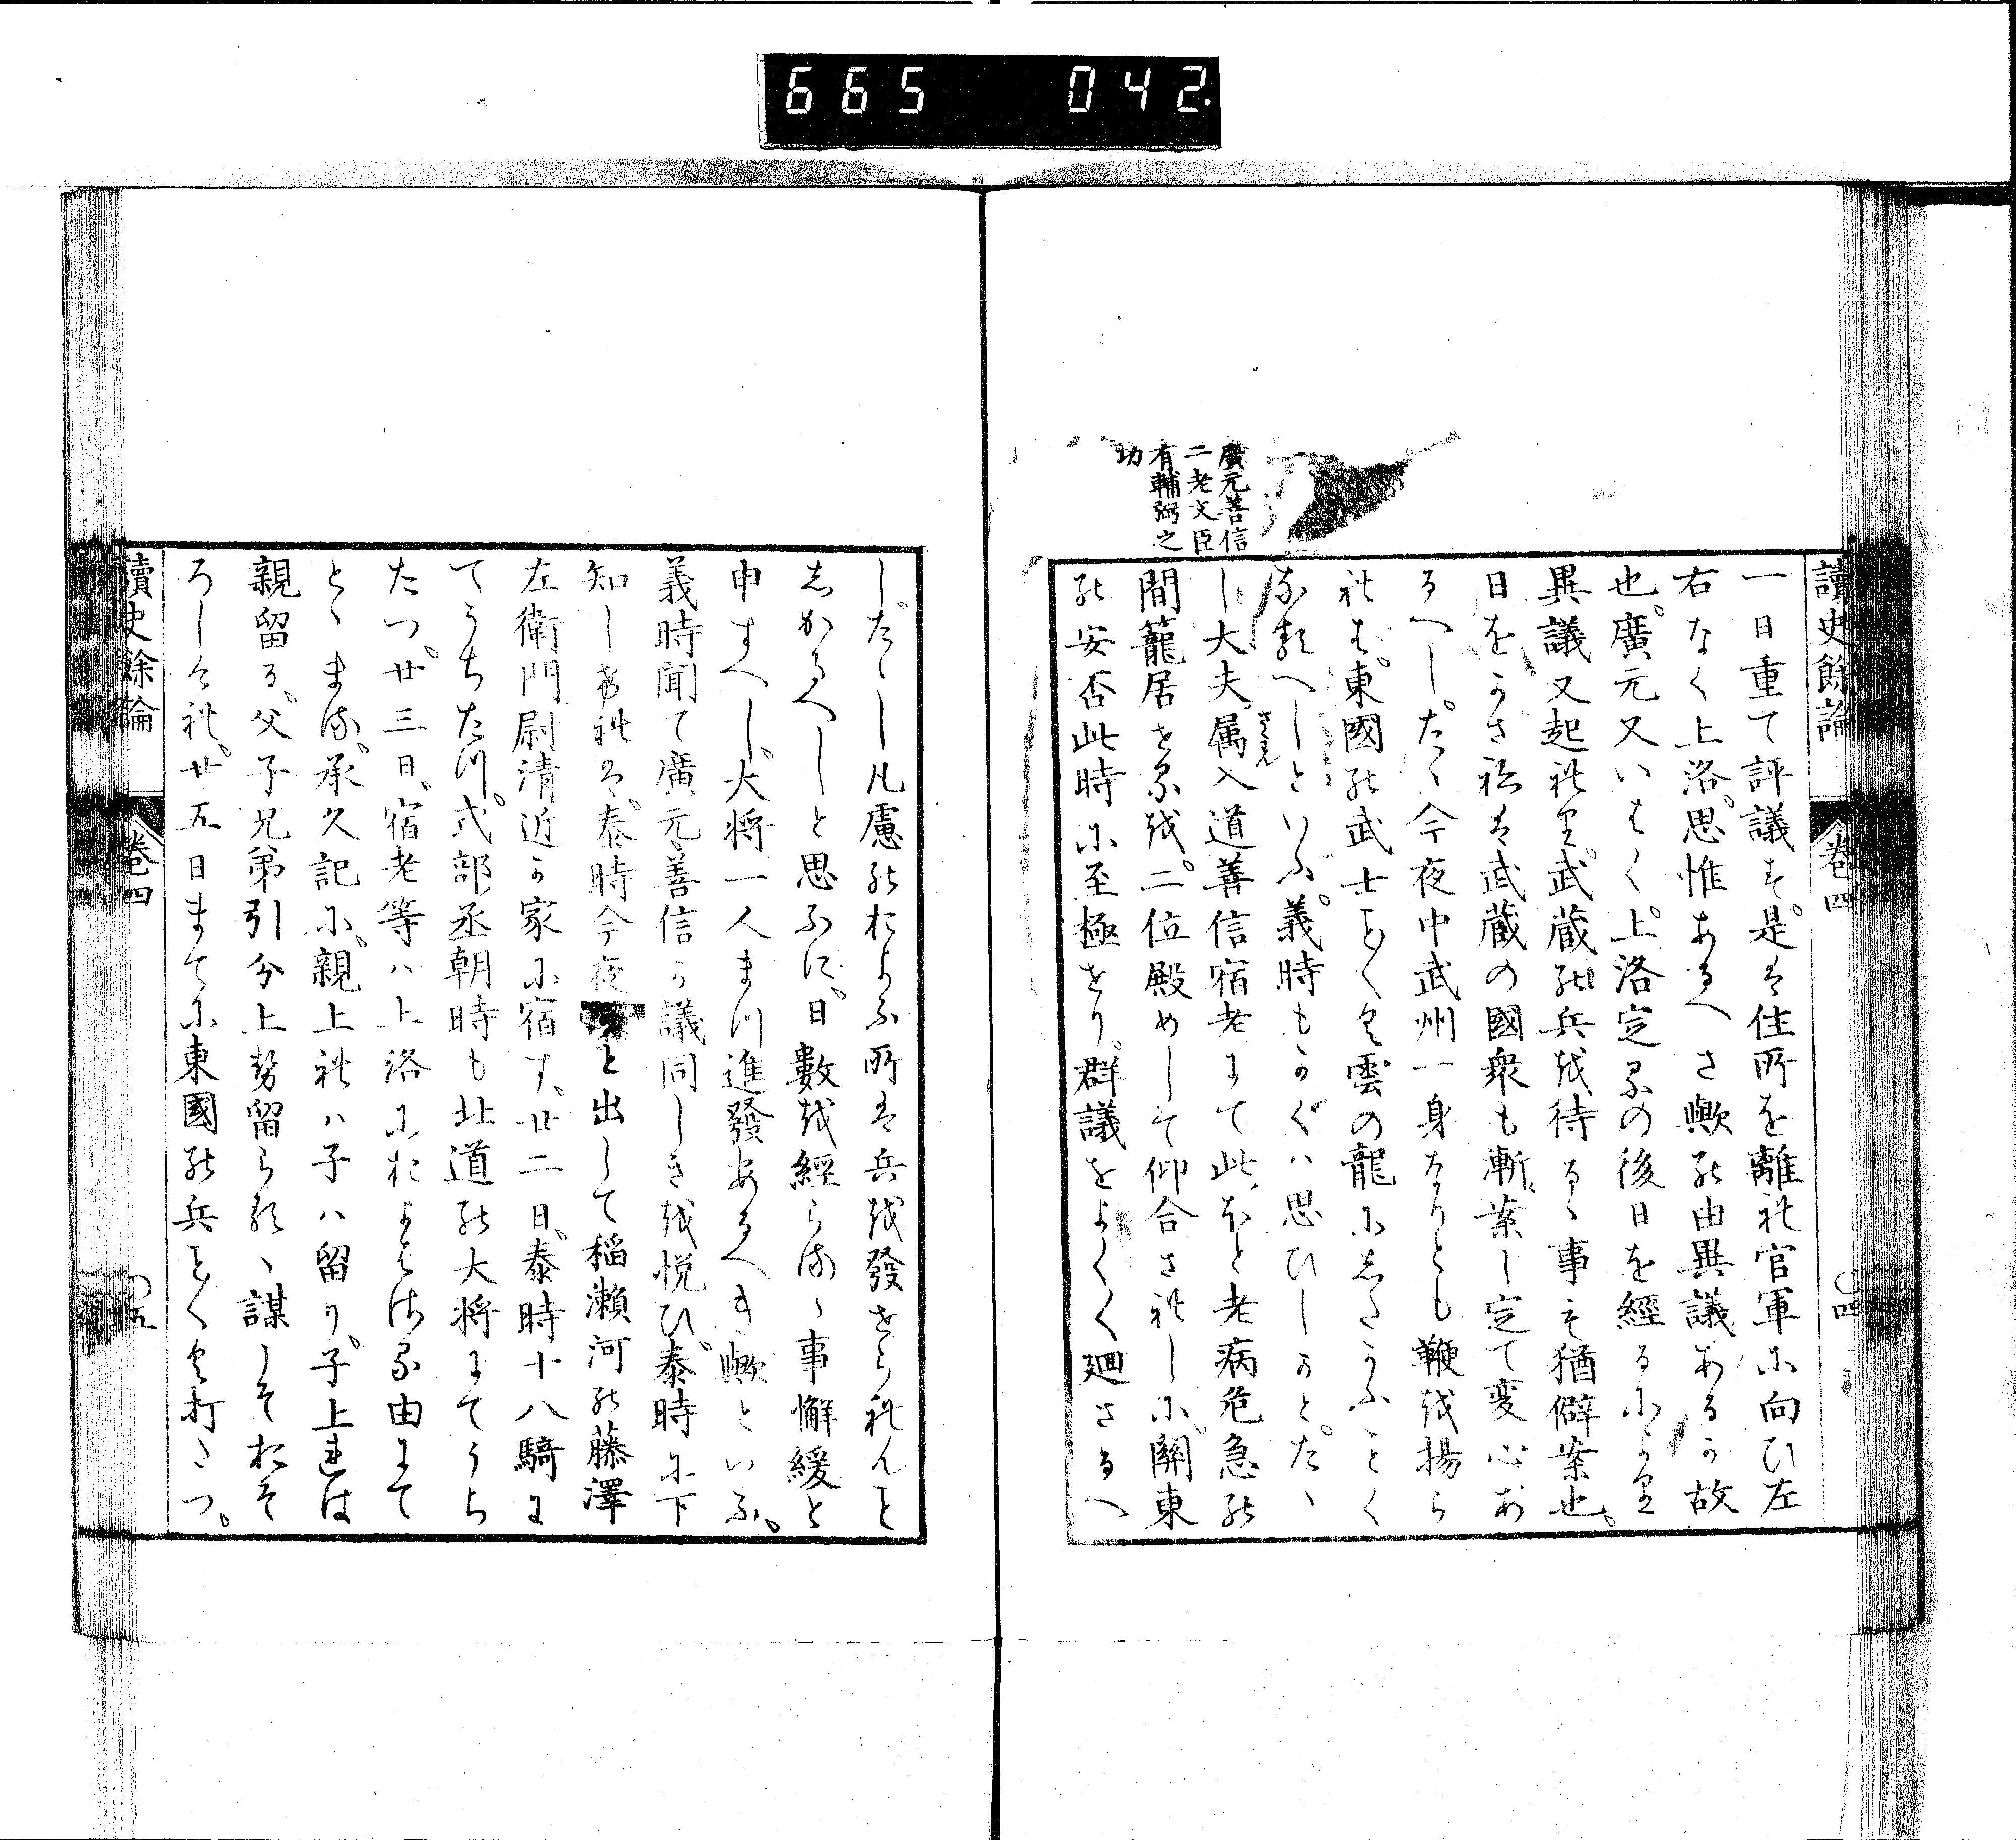 665 042.
讀史餘論 卷四 〇四
一日重て評議す。是は住所を離れ官軍に向ひ左
右なく上洛。思惟あるへき歟の由異議あるか故
也。廣元又いはく。上洛定るの後日を經るにより
異議又起れり。武蔵の兵を待るゝ事も猶僻案也。
日をかさねは武蔵の國衆も漸案し定て変心あ
るへし。たゝ今夜中武州一身なりとも鞭を揚ら
れは。東國の武士ことく〱雲の龍にしたかふことく
なるへしといふ。義時もかくは思ひしかと。たゝ
し大夫属入道善信宿老にて此ほと老病危急の
さくわん
間籠居せるを。二位殿めして仰合されしに。關東
の安否此時に至極せり。群議をよく〱廻さるへ
廣元善信
二老文臣
有輔弼之
功
したゝし凡慮のおよふ所は兵を發せられんと
しかるへしと思ふに。日數を經らるゝ事懈緩と
申すへし。大将一人まつ進發あるへき歟といふ。
義時聞て廣元善信か議同しきを悦ひ。泰時に下
知しけれは。泰時今夜と出して稲瀬河の藤澤
左衛門尉清近か家に宿す。廿二日。泰時十八騎に
てうちたつ。式部丞朝時も北道の大将にてうち
たつ。廿三日。宿老等ハ上洛におよはさる由にて
とゝまる。承久記に。親上れハ子ハ留り。子上れは
親留る。父子兄弟引分上㔟留らるゝ謀しそおそ
ろしけれ。廿五日まてに東國の兵ことく〱打たつ。
讀史餘論 卷四 〇五